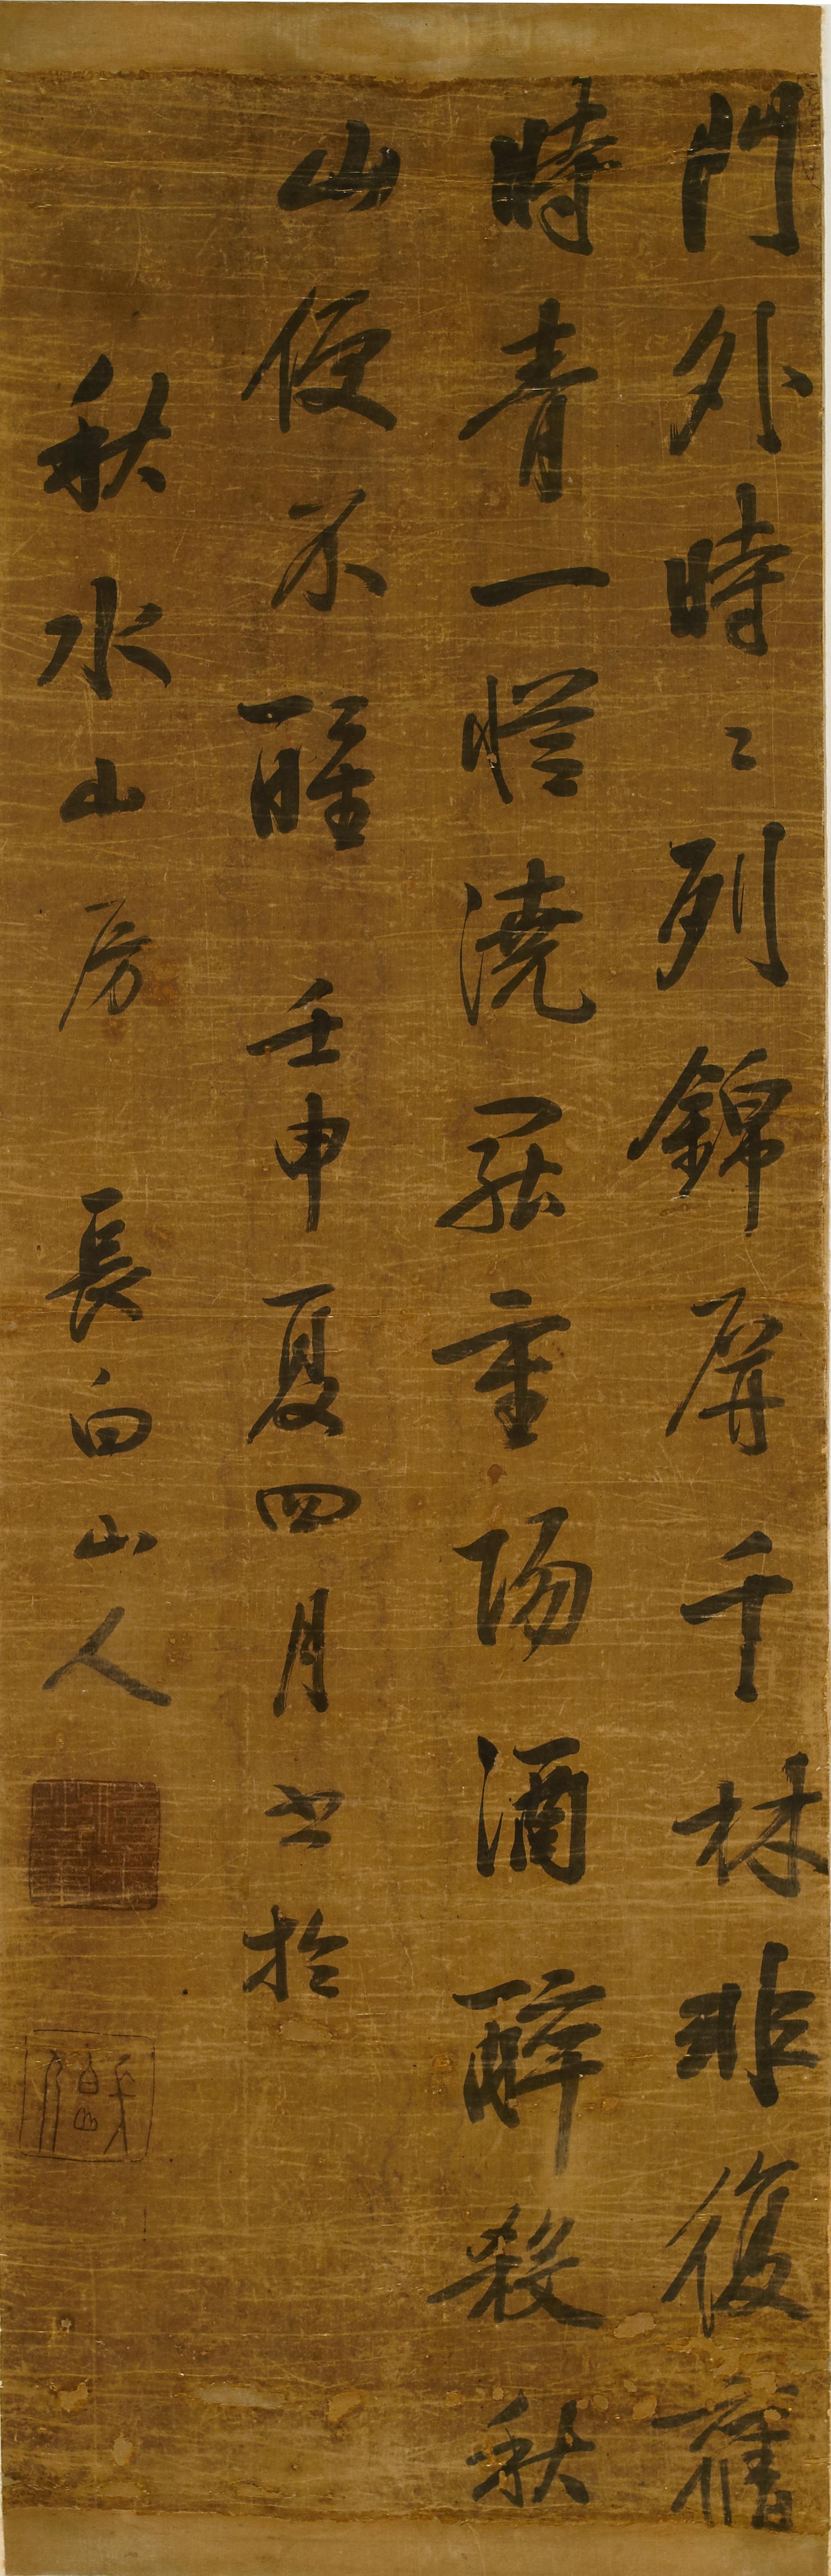 門外時々列錦屏千林非復舊
時青一從澆罷重陽酒醉殺秋
山便不醒 壬申夏四月書於
秋水山房 長白山人